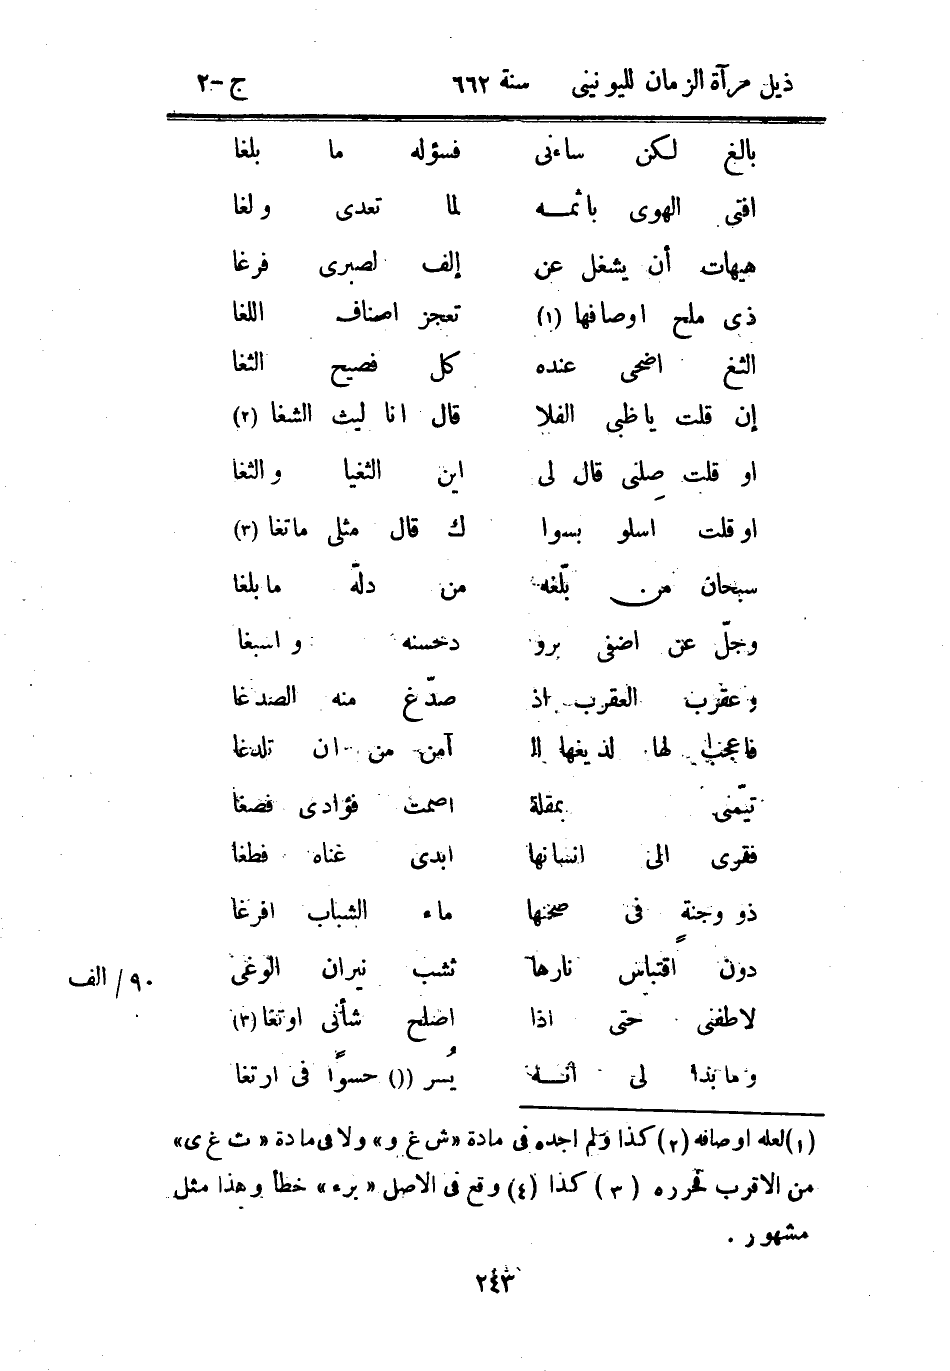 ذيل مرآة الزمان لليونينى سنة ٦٦٢ ج-٢
بالغ لكن ساءنى فسؤله ما بلغا
افتى الهوى باثمه لما تعدى ولغا
هيهات أن يشغل عن إلف لصبرى فرغا
ذى ملح اوصافها (١) تعجز اصناف اللغا
الثغ اضحى عنده كل فصيح الثغا
إن قلت ياظبى الفلا قال انا ليث الشغا (٢)
او قلت صلنى قال لى اين الثغيا والثغا
او قلت اسلو بسوا ك قال مثلى ماتغا (٣)
سبحان من بلّغه من دلّه مابلغا
وجلّ عن اضفى برو دحسنه واسبغا
وعقرب العقرب اذ صدّغ منه الصدغا
فاعجب لها لذيغها ا آمن من ان تلدغا
تيّمنى بمقلة اصمت فؤادى فصغا
فقرى الى انسانها ابدى غناه فطغا
ذو وجنةٍ فى صحنها ماء الشباب افرغا
دون اقتباس نارها تشب نيران الوغى
٩٠/ الف
لاطفنى حتى اذا اصلح شأنى اوتغا (٣)
وما بدا لى أنه يُسر () حسوًا فى ارتغا
(١) لعله اوصافه (٢) كذا ولم اجده فى مادة «ش غ و» ولا فى مادة «ث غ ى»
من الاقرب فحرره (٣) كذا (٤) وقع فى الاصل «برء» خطأ وهذا مثل
مشهور .
٢٤٣